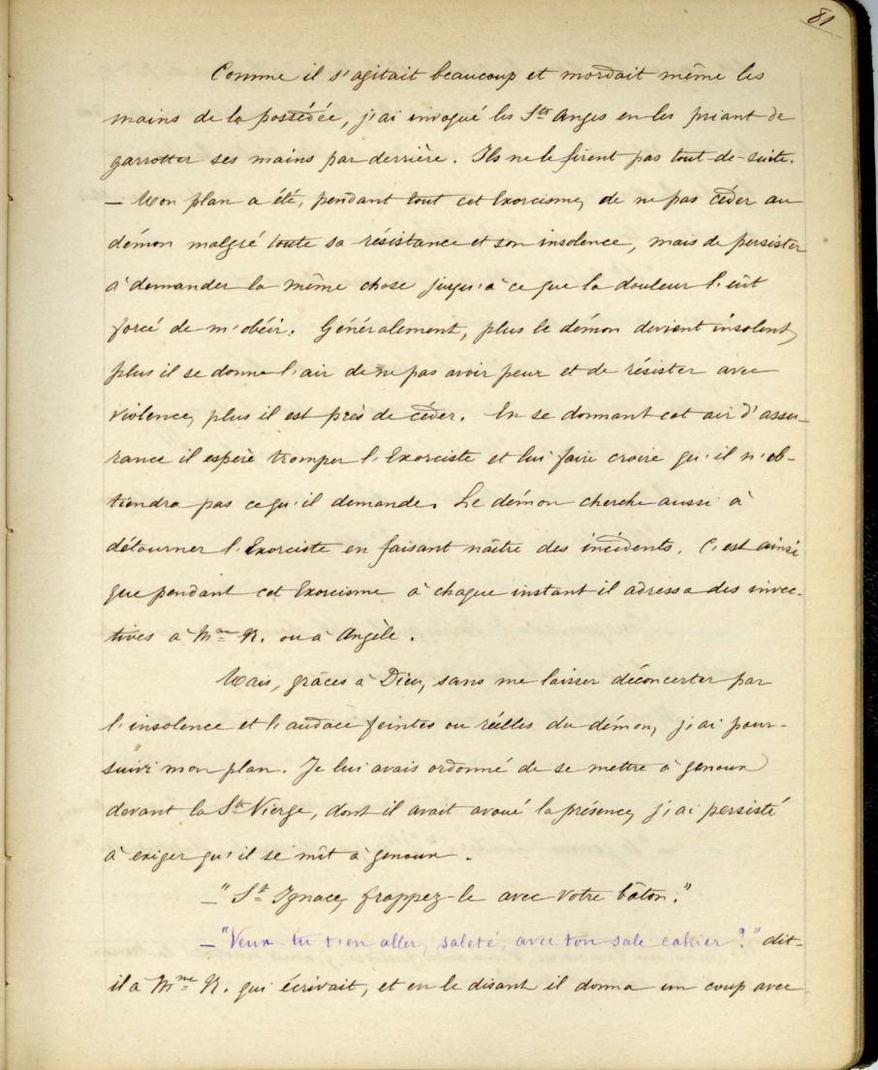 81
Comme il s'agitait beaucoup et mordait même les
mains de la possédée, j'ai invoqué les Sts Anges en les priant de
garrotter ses mains par derrière. Ils ne le firent pas tout-de-suite.
— Mon plan a été, pendant tout cet Exorcisme, de ne pas céder au
démon malgré toute sa résistance et son insolence, mais de persister
à demander la même chose jusqu'à ce que la douleur l'eût
forcé de m'obéir. Généralement, plus le démon devient insolent,
plus il se donne l'air de ne pas avoir peur et de résister avec
violence, plus il est près de céder. En se donnant cet air d'assu-
rance il espère tromper l'Exorciste et lui faire croire qu'il n'ob-
tiendra pas ce qu'il demande. Le démon cherche aussi à
détourner l'Exorciste en faisant naître des incidents. C'est ainsi
que pendant cet Exorcisme à chaque instant il adressa des invec-
tives à Mme N. ou à Angèle.
Mais, grâces à Dieu, sans me laisser déconcerter par
l'insolence et l'audace feintes ou réelles du démon, j'ai pour-
suivi mon plan. Je lui avais ordonné de se mettre à genoux
devant la Ste Vierge, dont il avait avoué la présence, j'ai persisté
à exiger qu'il se mît à genoux.
— "St Ignace, frappez-le avec votre bâton."
— "Veux-tu t'en aller, saleté, avec ton sale cahier ?" dit-
il à Mme N. qui écrivait, et en le disant il donna un coup avec